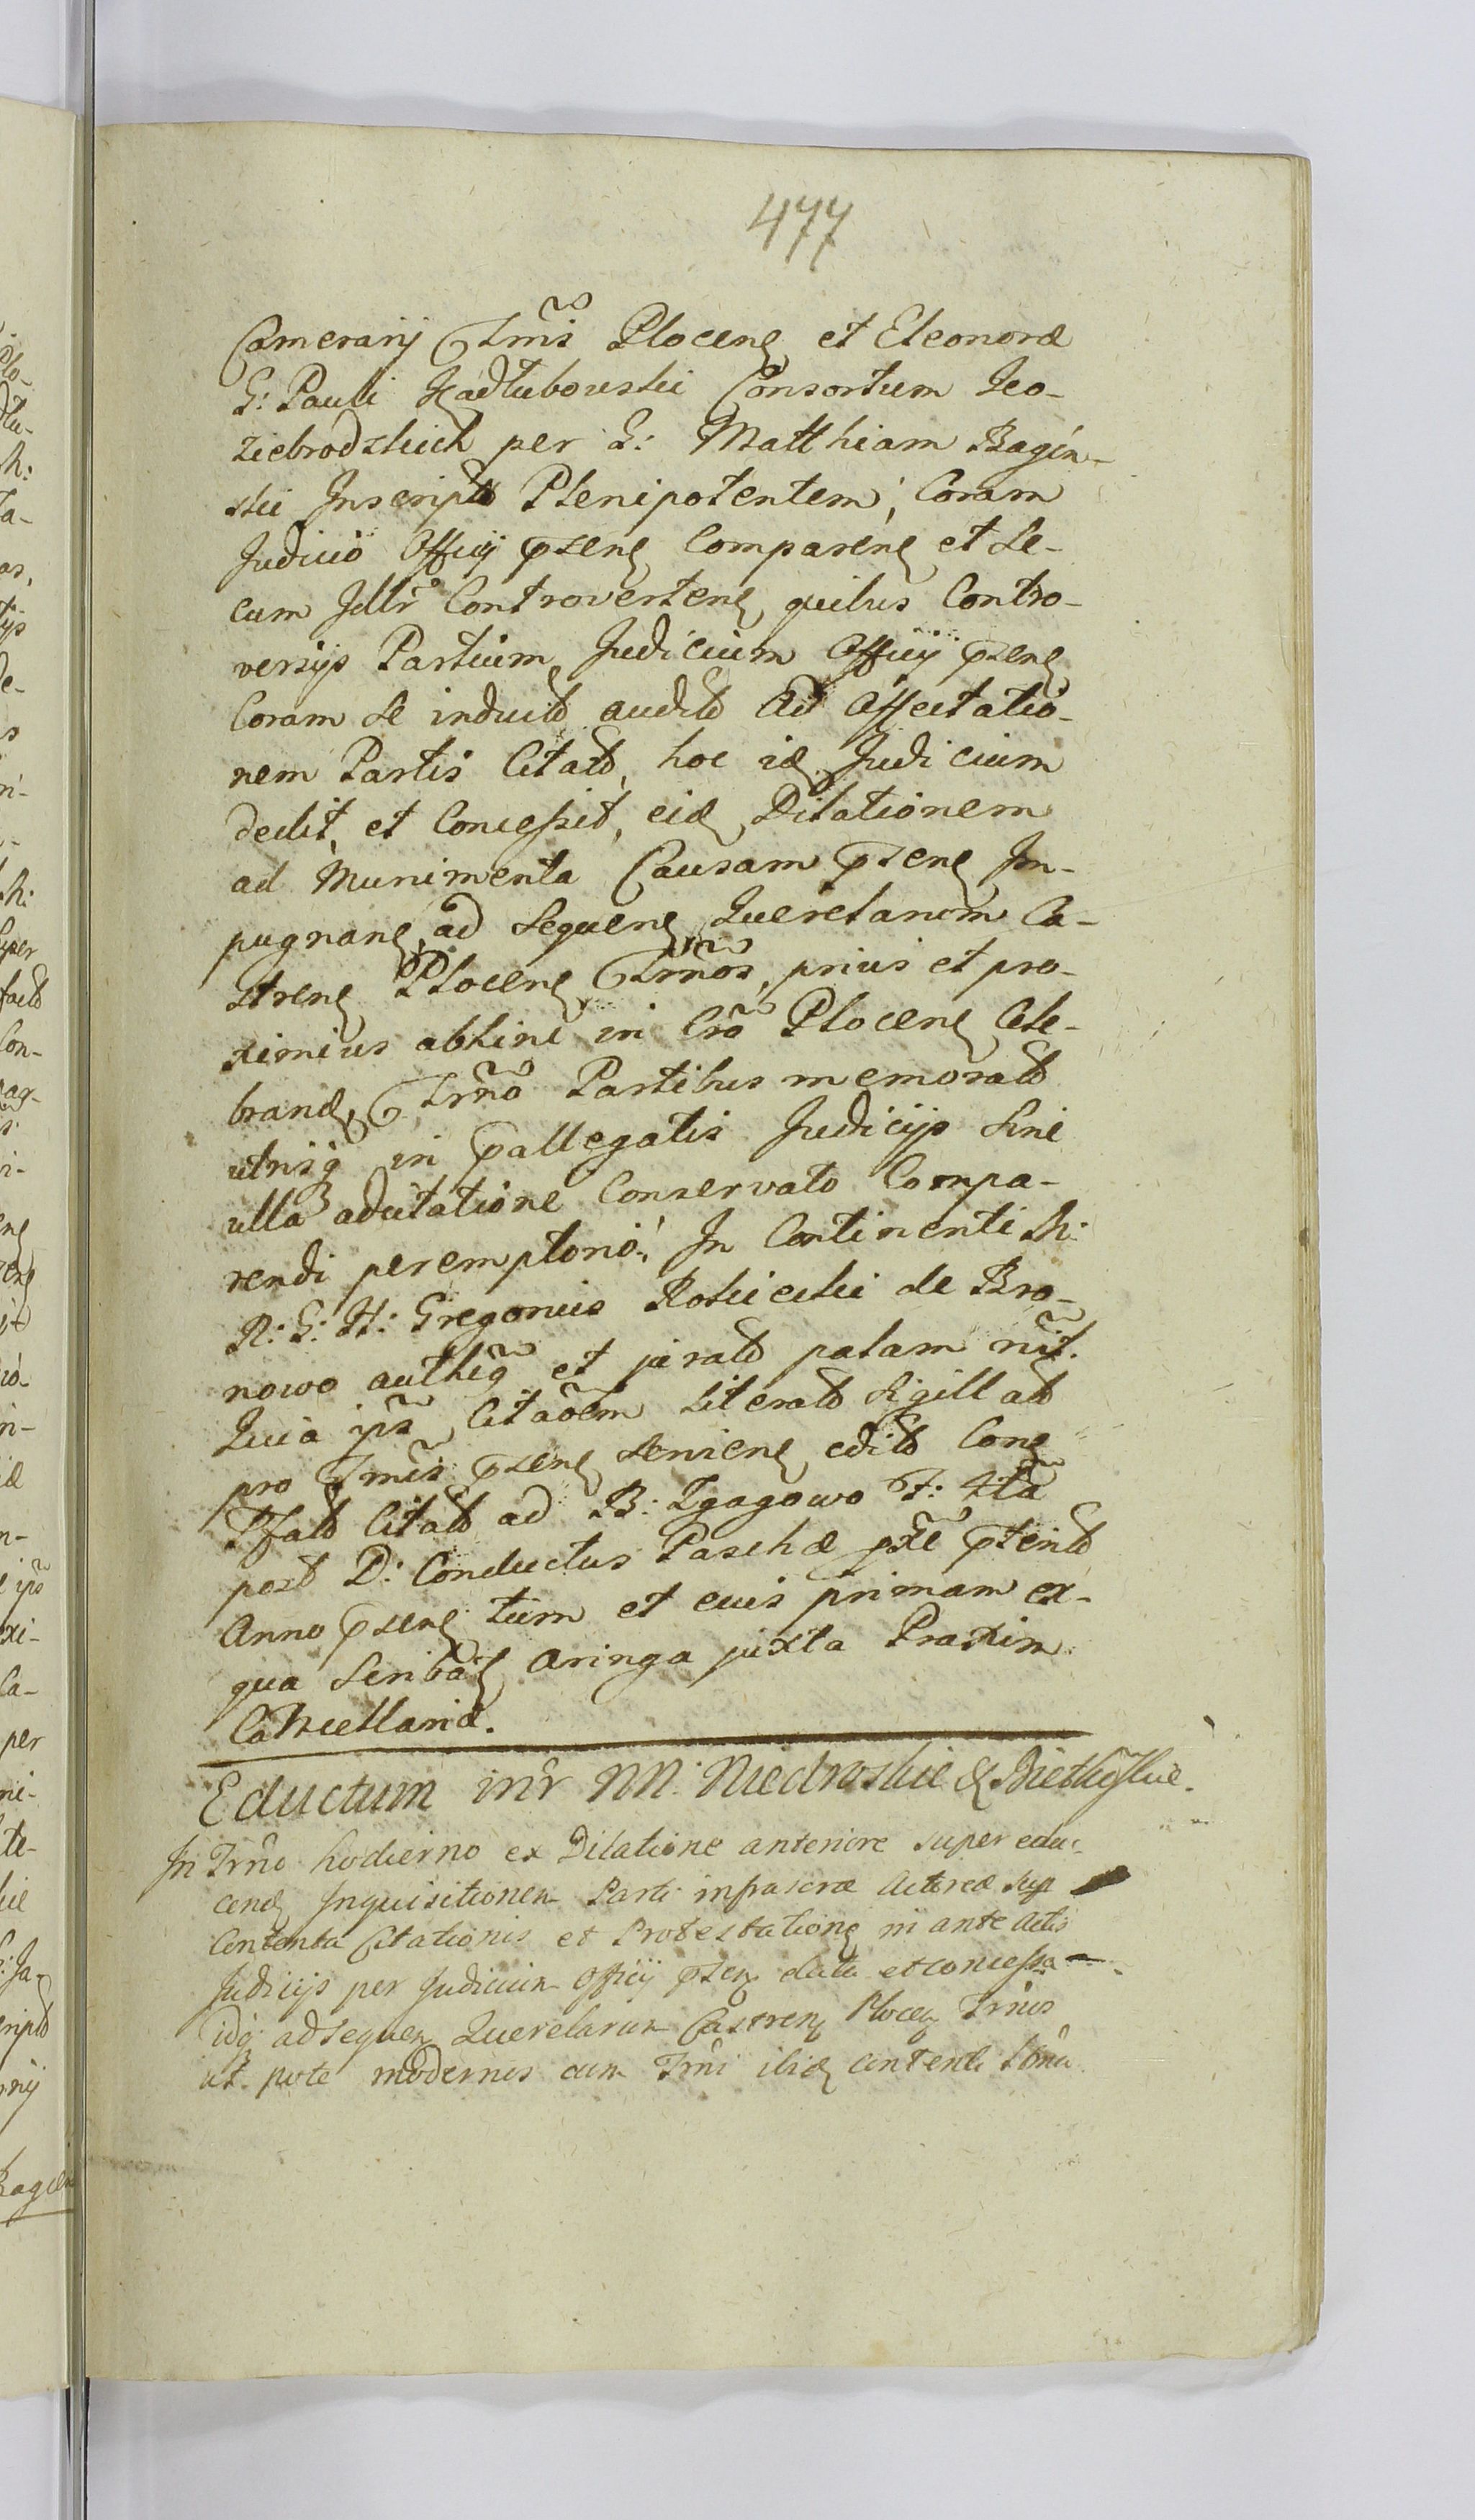 477
Camerarij Trmis Plocens et Eleonoræ
G: Pauli Kadłubowski Consortum Leo-
ziebrodzkich per G: Matthiam Bagin-
ski Inscripto Plenipotentem, Coram
Judicio Officij psens Comparens et Se-
cum Jdlr Controvertens, quibus Contro-
versijs Partium Judicium Officij psens
Coram se induito audito Ad Affectatio-
nem Partis Citato, hoc id Judicium
dedit, et Concessit, eid Dilationem
ad Munimenta Causam psens Im-
pugnans, ad Sequens Querelarum Ca-
strens Plocens Trmos, prius et pro-
ximius abhinc in Cro Plocens Cele-
brand, Trmo Partibus memorato
utrisq in pallegatis Judicijs Sine
ulla adcitatione Conservato Compa-
rendi peremptorio. In Continenti M:
R: G: H: Gregorius Rokicki de Bro-
nowo authq et jurato palam rit.
Quia ipse Citaoem Literato Sigillato
pro Trmis psens Serviens edito Cons
Pfato Citato ad B: Zgagowo F: 4ta
post D: Conductus Paschæ pxe pterito
Anno psens tum et cuis primam ex-
qua Scribat Aringa juxta Praxim
Cancellariæ.
Eductum inr NN: Niedroskie &
In Trmo hodierno ex Dilatione anteriore super edu-
cend Inquisitionem Parti infrascræ Actoreæ sup
Contenta Citationis et Protestations in ante Actis
Judicijs per Judicium Officij psens data et concessa
idq ad sequens Querelarum Castrens Plocens Trmos
ut pote modernos cum Trmi ibid contenti